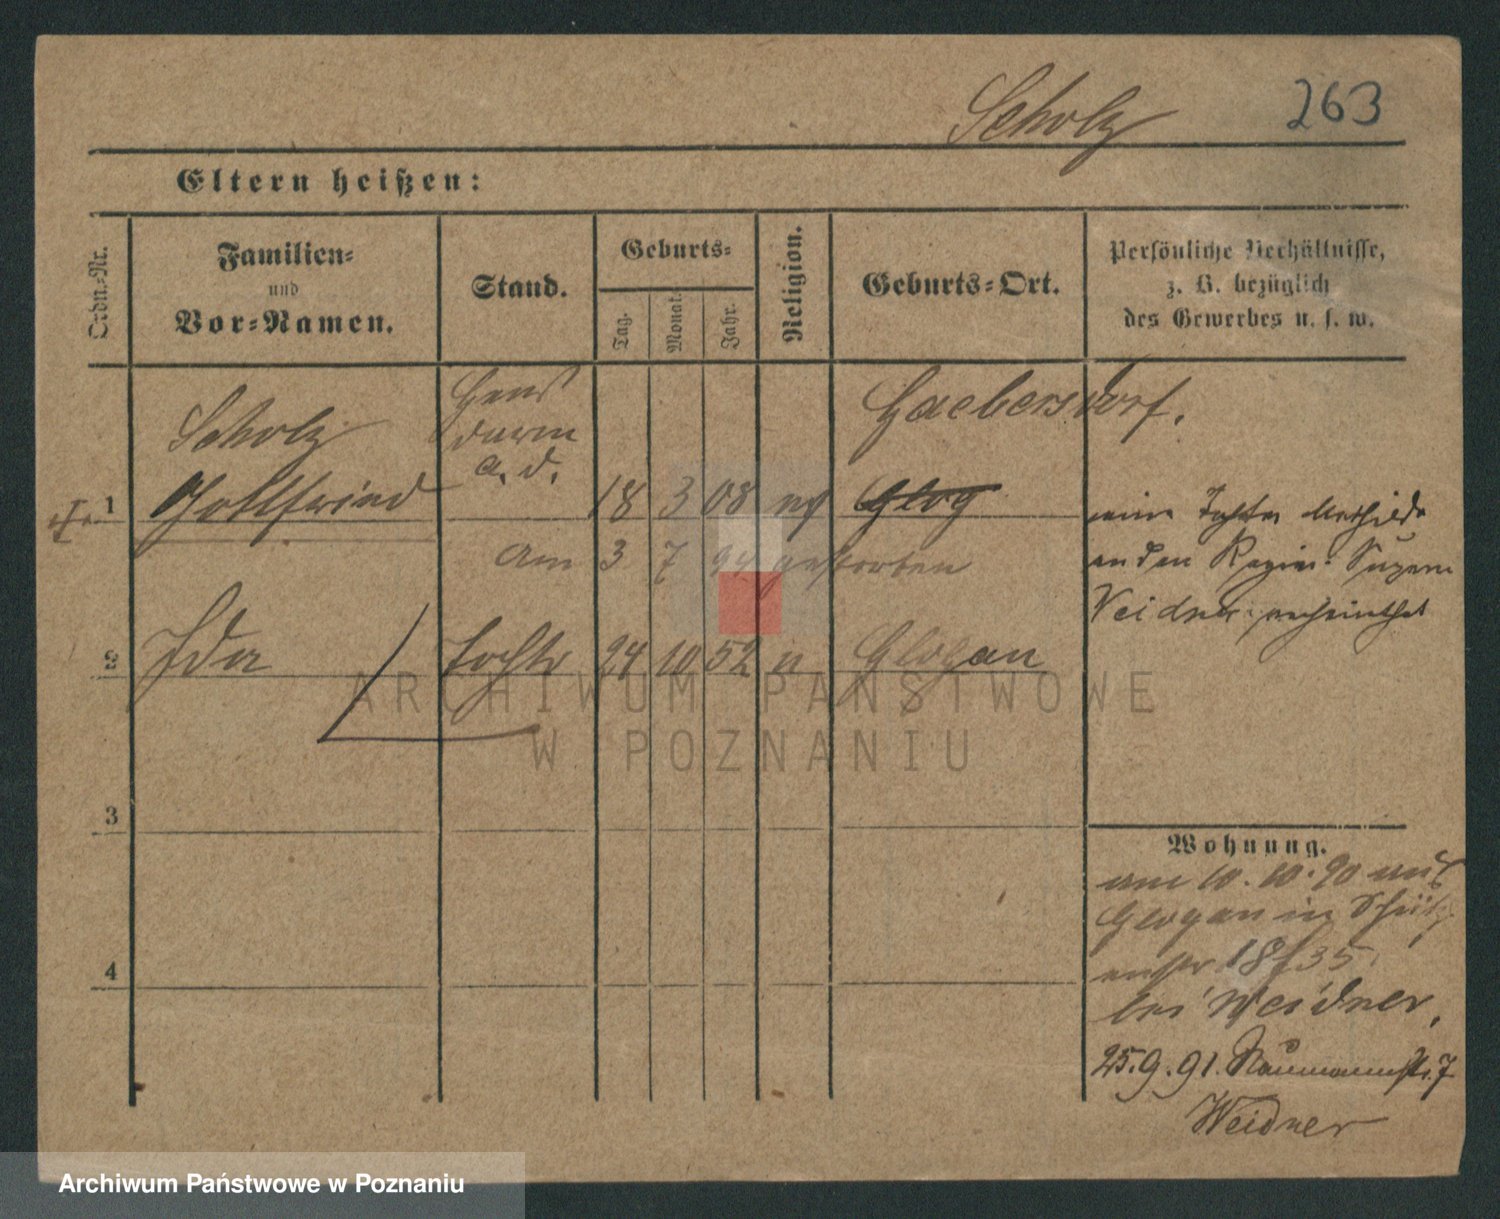 Scholz
263
Eltern heißen:
Ordn.-Nr.
Familien-
und
Vor-Namen.
Stand.
Geburts-
Tag.
Monat.
Jahr.
Religion.
Geburts-Ort.
Persönliche Verhältnisse,
z. B. bezüglich
des Gewerbes u. s. w.
1
Scholz
Gottfried
Gens
darm
a. d.
18 3 08 ev
Haebersdorf.
Glog
am 3 7 94 gestorben
eine Tochter Mathilde
an den Regier. Supern
Weidner verheirathet
2
Ida
Tochter
24 10 52 u
Glogau
ARCHIWUM PAŃSTWOWE
W POZNANIU
3
4
Wohnung.
am 10.10.90 aus
Glogau in Schütz
enstr 18/35
bei Weidner,
25.9.91. Naumannstr. 7
Weidner
Archiwum Państwowe w Poznaniu